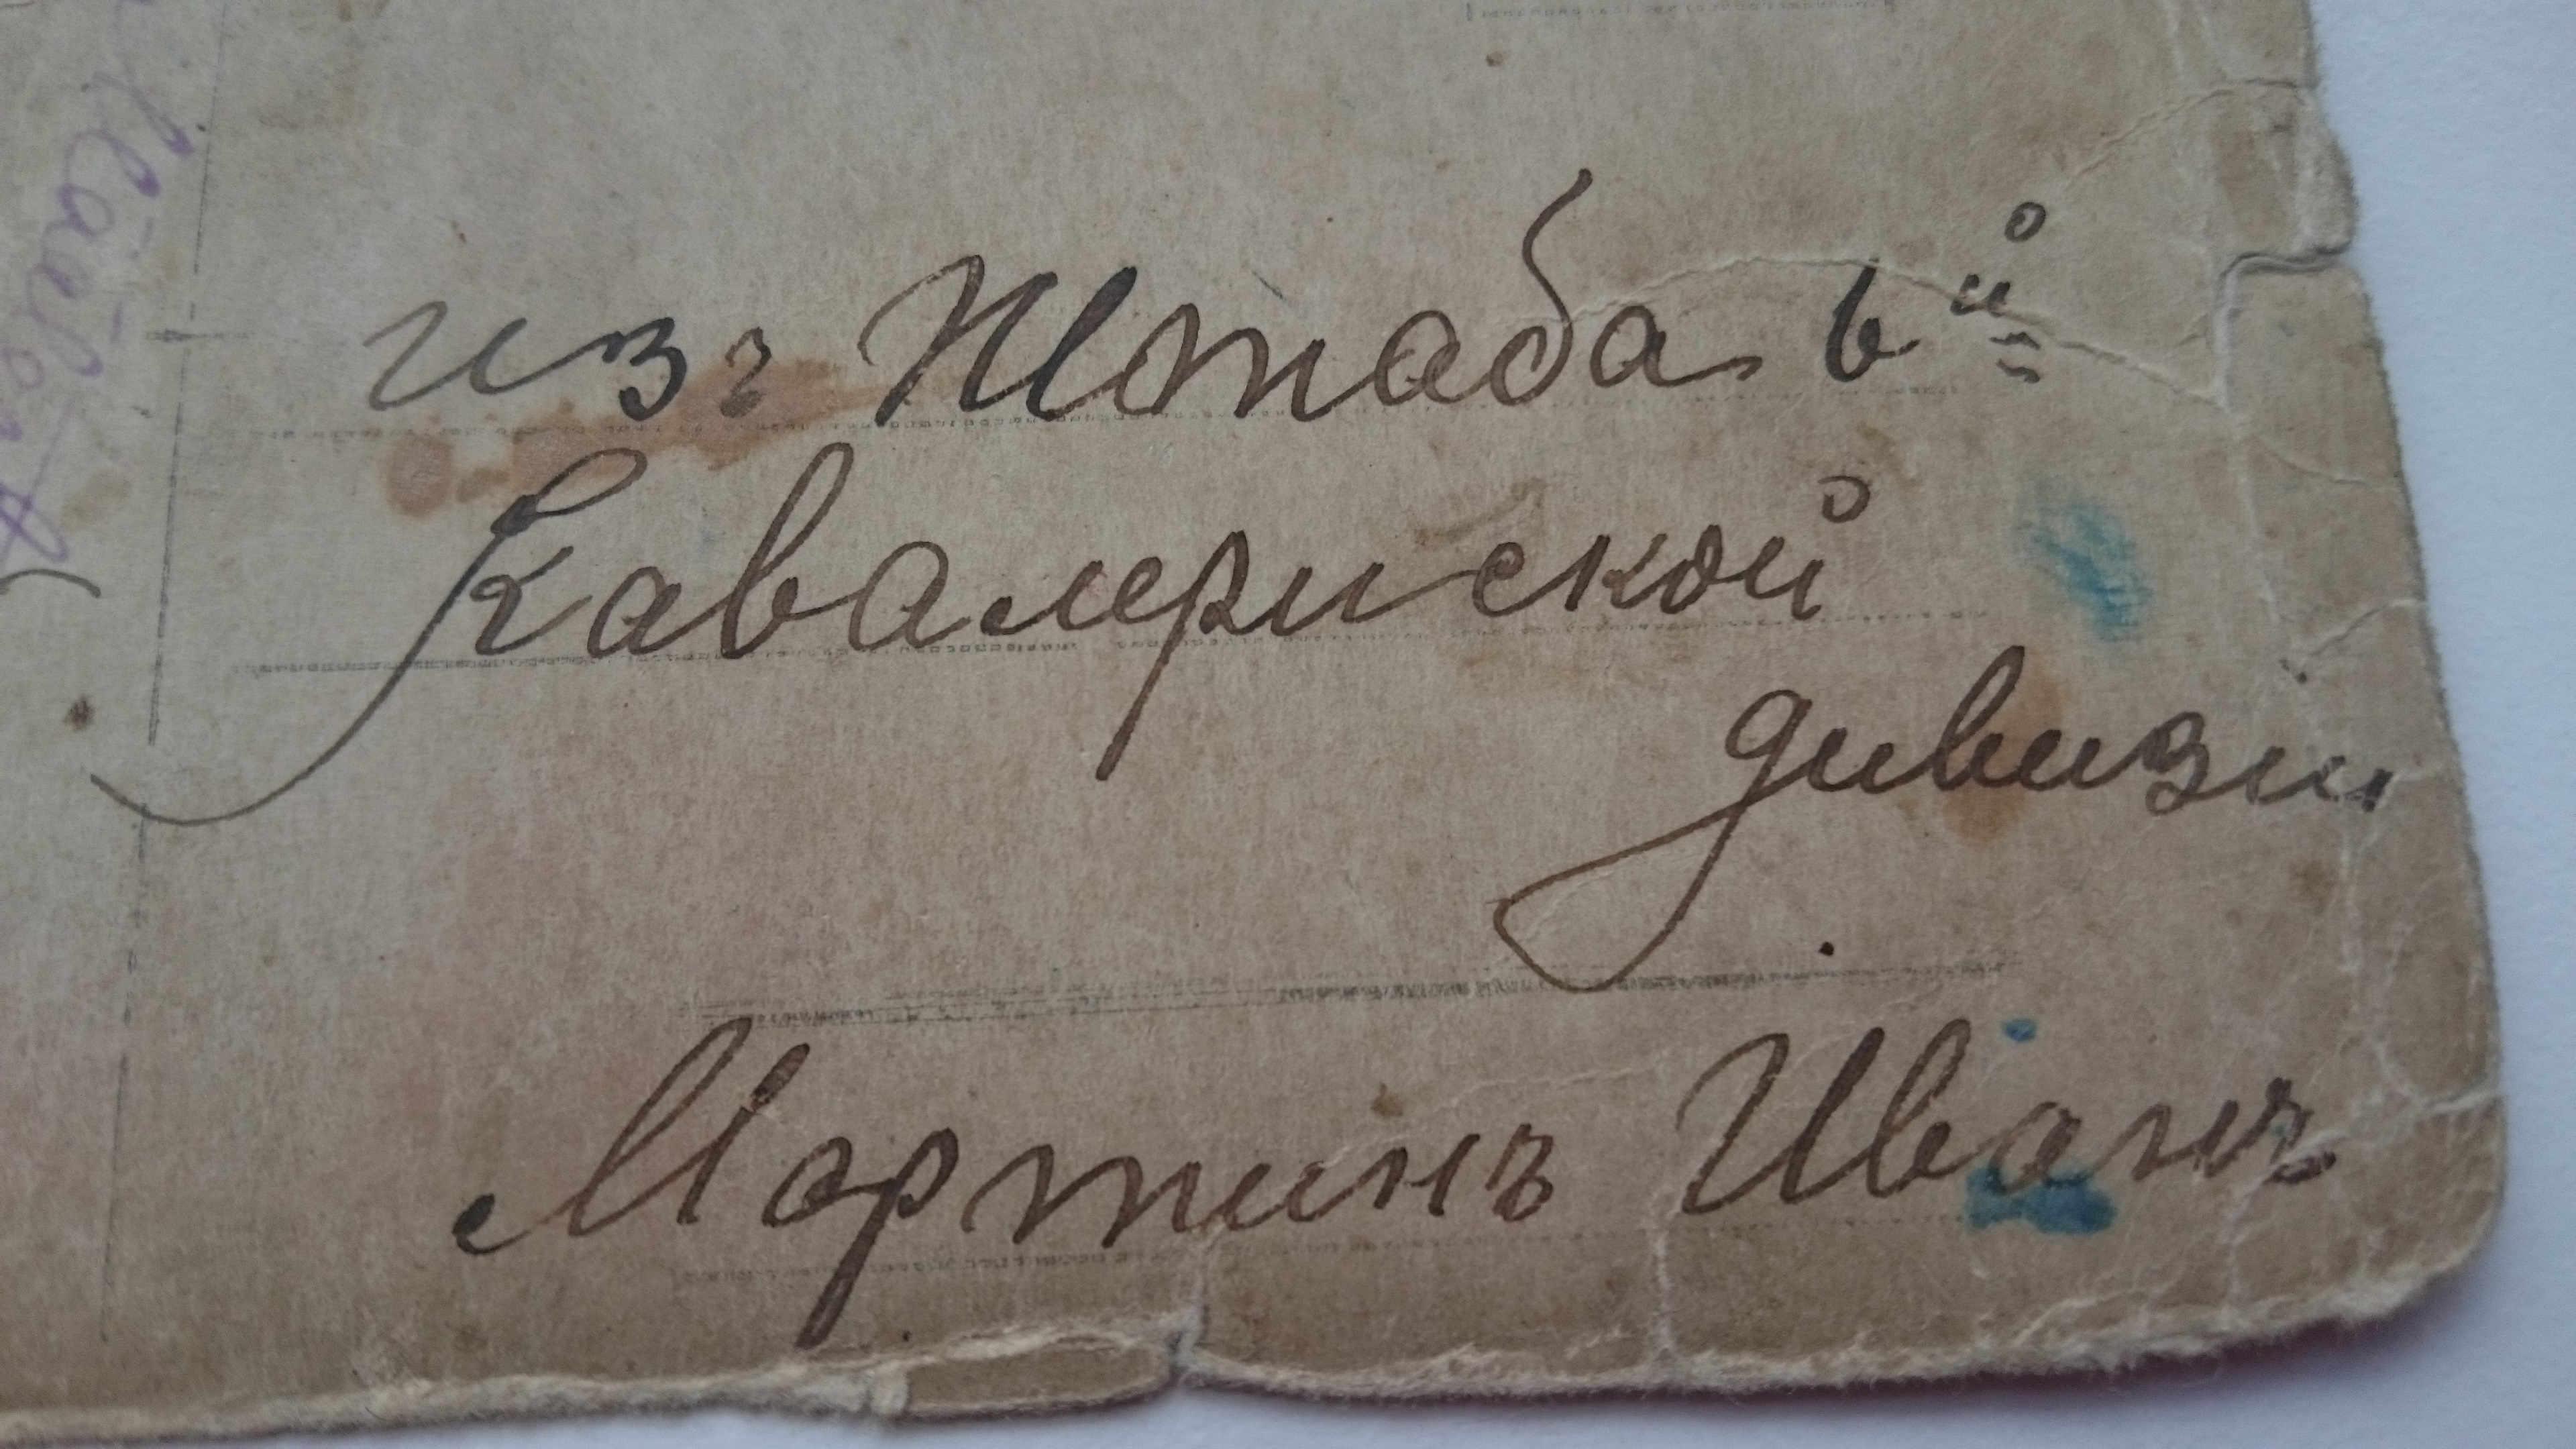 изъ Штаба 6й
Кавалерииской
дивизии
Мартинъ Иванъ